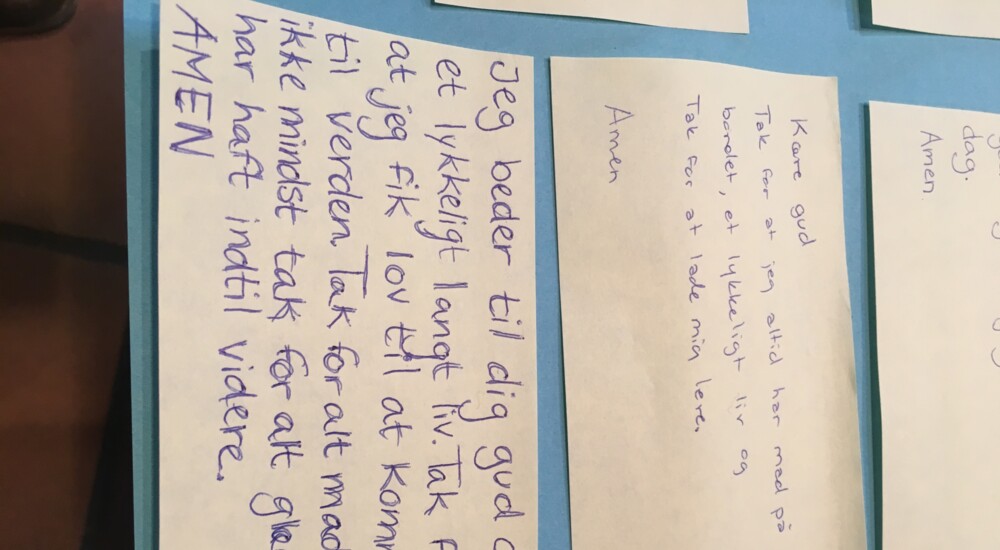 Jeg beder til dig gud
et lykkeligt langt liv. Tak
at jeg fik lov til at
til verden. Tak for alt mad
ikke mindst tak for alt
har haft indtil videre.
AMEN
Kære gud
Tak for at jeg altid har mad på
bordet, et lykkeligt liv og
Tak for at lade mig leve.
Amen
dag.
Amen.